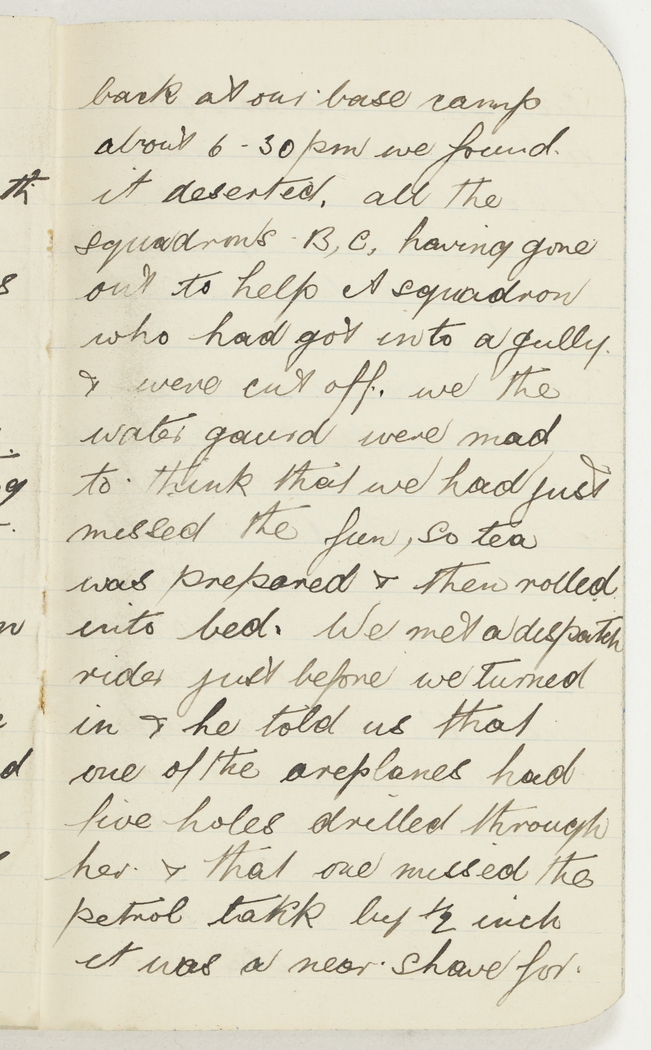 back at our base camp
about 6-30pm we found.
it deserted, all the
squadrons B, C, having gone
out to help A squadron
who had got into a gully.
& were cut off. we the
water gaurd were mad
to think that we had just
missed the fun, so tea
was prepared & then rolled
into bed. We met a dispatch
rider just before we turned
in & he told us that
one of the areplanes had
five holes drilled through
her. & that one missed the
petrol takk by ½ inch
it was a near shave for.